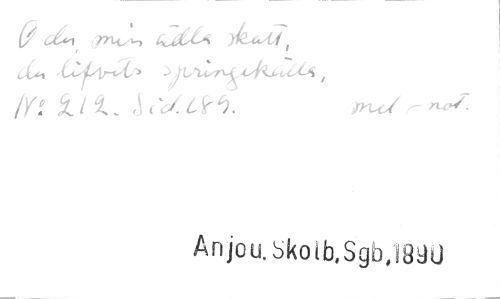 O du, min ädla skatt,
du lifvets springekälla,
No 212. Sid. 189. mel-not.
Anjou. Skolb, Sgb, 1890